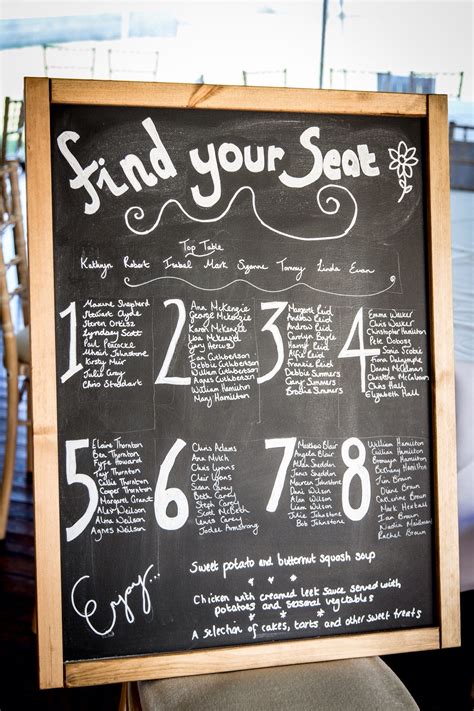 find your Seat
Top Table
Kathryn Robert Isabel Mark Suzanne Tommy Linda Ewan
1
Maxine Shepherd
Stewart Clyde
Steven Ortisz
Lyndsay Scott
Paul Peacocke
Mhairi Johnstone
Kirsty Muir
Julie Gray
Chris Stoddart
2
Ann McKenzie
George McKenzie
Karen McKenzie
Lisa McKenzie
Gary
Ian Cuthbertson
Debbie Cuthbertson
William Cuthbertson
Agnes Cuthbertson
William Hamilton
Mary Hamilton
3
Margaret Reid
Andrew Reid
Andrew Reid
Carolyn Boyle
Harry Reid
Alfie Reid
Francis Reid
Debbie Simmers
Gary Simmers
Brodie Simmers
4
Emma Weaver
Chris Weaver
Christopher Hamilton
Pete Dobosz
Sonia Scobie
Fiona Dalrymple
Danny McColman
Christina McColman
Chris Hall
Elizabeth Hall
5
Elaine Thornton
Ben Thornton
Fyfe Howard
Jay Thornton
Callie Thornton
Cooper Thornton
Margaret Grant
Alex Neilson
Alma Neilson
Agnes Neilson
6
Chris Adams
Ann Mutch
Chris Lyons
Chris Lyons
Clair Lyons
Susan Carey
Beth Carey
Steph Carey
Scott McBeth
Lewis Carey
Jodee Armstrong
7
Matthew Blair
Angela Blair
Allan Sneddon
Janis Sneddon
Maureen Johnstone
Dani Wilson
Alan Wilson
Liam Wilson
Julie Johnstone
Bob Johnstone
8
William Hamilton
Gillian Hamilton
Bronwyn Hamilton
Bethany Hamilton
Jim Brown
Diane Brown
Catherine Brown
Mark Hextall
Ian Brown
Nadia Maidman
Rachel Brown
Enjoy...
Sweet potato and butternut squash soup
*
Chicken with creamed leek sauce served with
potatoes and seasonal vegetables
*
A selection of cakes, tarts and other sweet treats